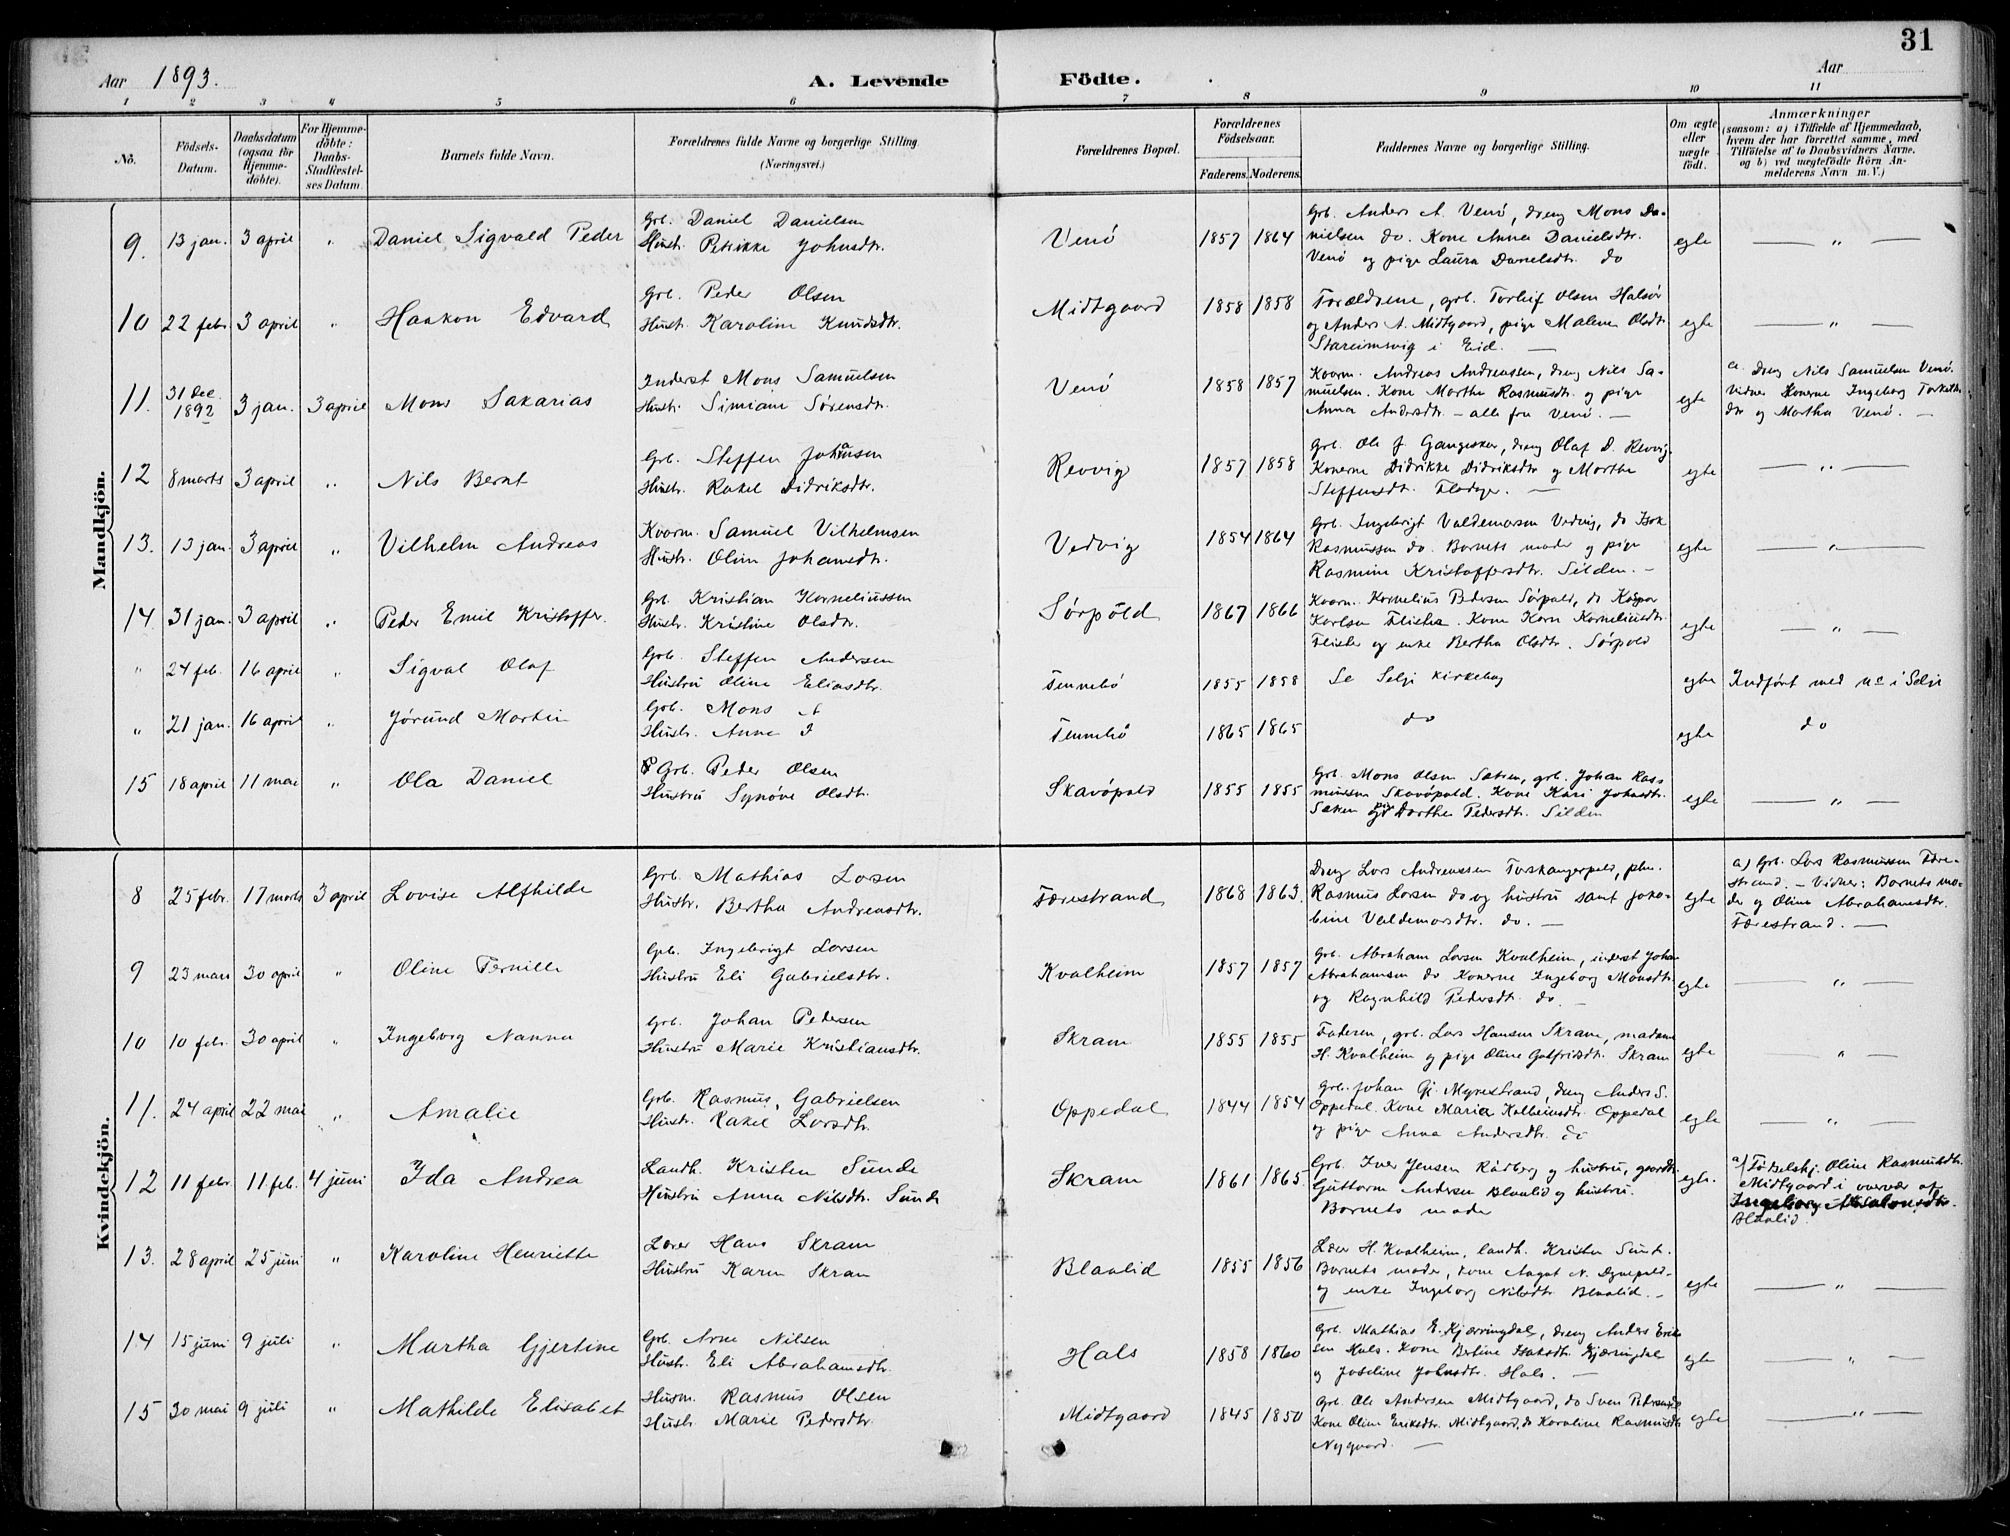 31
Aar 1893. A. Levende Födte. Aar
1 2 3 4 5 6 7 8 9 10 11
No.
Födsels-
Datum.
Daabsdatum
(ogsaa för
Hjemme-
döbte).
For Hjemme-
döbte:
Daabs-
Stadfæstel-
ses Datum.
Barnets fulde Navn.
Forældrenes fulde Navne og borgerlige Stilling
(Næringsvei.)
Forældrenes Bopæl.
Forældrenes
Födselsaar.
Faderens. Moderens.
Faddernes Navne og borgerlige Stilling.
Om ægte
eller
uægte
födt.
Anmærkninger
(saasom: a) i Tilfælde af Hjemmedaab,
hvem der har forrettet samme, med
Tilföielse af to Daabsvidners Navne,
og b) ved uegtefödte Börn An-
melderens Navn m. V.)
Mandkjön.
9. 13 jan. 3 april " Daniel Sigvald Peder
Grb. Daniel Danielsen
Hustr. Petrikke Johnsdtr.
Venö 1857 1864
Grb. Anders A. Venö, dreng Mons Da-
nielsen do. Kone Anna Danielsdtr.
Venö og pige Laura Danielsdtr. do
egte — " —
10 22 febr 3 april " Haakon Edvard
Grb. Peder Olsen
Hustr. Karoline Knudsdtr.
Midtgaard 1858 1858
Forældrene, grb. Torleif Olsen Halsör
og Anders A. Midtgaard, pige Malene Olsdtr
Stareimsvig i Eid. —
egte — " —
11. 31 dec. 1892 3 jan. 3 april Mons Sakarias
Inderst Mons Samuelsen
Hustr. Simiane Sörensdtr.
Venö 1858 1857
Kvarm. Andreas Andreassen, dreng Nils Sa-
muelsen. Kone Marthe Rasmusdtr. og pige
Anna Andersdtr. – alle fra Venö. —
egte
a. Dreng Nils Samuelsen Venö.
Vidner Konerne Ingeborg
dtr og Martha Venö. —
12 8 marts 3 april " Nils Bernt
Grb. Steffen Johansen
Hustr. Rakel Didriksdtr.
Revvig 1857 1858
Grb. Ole J. Gangesker, dreng Olaf D. Revvig.
Konerne Didrikke Didriksdtr og Marthe
Steffensdtr. —
egte — " —
13. 13 jan. 3 april " Vilhelm Andreas
Kvarm. Samuel Vilhelmsen
Hustr. Oline Johansdtr.
Vedvig 1854 1864
Grb. Ingebrigt Valdemarsen Vedvig, do Isak
Rasmussen do. Barnets moder og pige
Rasmine Kristoffersdtr. Silden. –
egte — " —
14 31 jan. 3 april " Peder Emil Kristoffer.
Grb. Kristian Korneliussen
Hustr. Kristine Olsdtr.
Sörpöld 1867 1866
Kvarm. Kornelius Pedersen Sörpold, do Kaspar
Karlsen Flister. Kone Karn Korneliusdtr.
Flister og enke Bertha Olsdtr. Sörpold
egte — " —
" 24 feb. 16 april " Sigval Olaf
Grb. Steffen Andersen
Hustru Oline Eliasdtr.
Tennebö 1855 1858
Se Selje kirkebog
egte Indfört med No i Selje
" 21 jan. 16 april " Jörund Martin
Grb. Mons A
Hustr. Anne J
Tennebö 1865 1865
do
egte do
15 18 april 11 mai " Ola Daniel
Grb. Peder Olsen
Hustru Synöve Olsdtr.
Skavöpold 1855 1855
Grb. Mons Olsen Sætren, grb. Johan Ras-
mussen Skavöpold. Kone Kari Johnsdtr.
Sæten og pige Dorthe Pedersdtr. Silden
egte — " —
Kvindekjön.
8 25 febr. 17 marts 3 april Lovise Alfhilde
Grb. Mathias Larsen
Hustr. Berthe Andreasdtr.
Færestrand 1868 1863.
Dreng Lars Andreassen Torskangerpold, pbr.
Rasmus Larsen do og hustru samt Jako-
bine Valdemarsdtr. do. —
egte
a) Grb. Lars Rasmussen Fære-
strand. – Vidner: Barnets mo-
der og Oline Abrahamsdtr.
Færestrand. —
9 23 mars 30 april " Oline Pernille
Grb. Ingebrigt Larsen
Hustru Eli Gabrielsdtr.
Kvalheim 1857 1857
Grb. Abraham Larsen Kvalheim, inderst Johan
Abrahamsen do Konerne Ingeborg Monsdtr.
og Ragnhild Pedersdtr. do. —
egte — " —
10 10 febr. 30 april " Ingeborg Nanna
Grb. Johan Pedersen
Hustru Marie Kristiansdtr.
Skram 1855 1855
Faderen, grb. Lars Hansen Skram, madame
H. Kvalheim og pige Oline Gotfridsdtr. Skram
egte — " —
11. 24 april 22 mai " Amalie
Grb. Rasmus Gabrielsen
Hustr. Rakel Larsdtr.
Oppedal 1844 1854
Grb. Johan Gj. Myrestrand, dreng Anders S.
Oppedal. Kone Maria Kolbeinsdtr. Oppedal
og pige Anna Andersdtr. do
egte — " —
12 11 febr. 11 feb. 4 juni Ida Andrea
Landh. Kristen Sunde
Hustru Anna Nilsdtr. Sunde
Skram 1861 1865.
Grb. Iver Jensen Rådberg og hustru, gaardbr.
Guttorm Andersen Blaalid og hustru.
Barnets moder
egte.
a) Födselshj. Oline Rasmusdtr.
Midtgaard i overvær af
Ingeborg Absalonsdtr.
Blaalid.
13. 28 april 25 juni " Karoline Henriette
Lærer Hans Skram
Hustru Karen Skram
Blaalid 1855 1856
Lærer H. Kvalheim, landh. Kristen Sunde.
Barnets moder, kone Aagot N. Dyrepold.
og enke Ingeborg Nilsdtr. Blaalid. –
egte — " —
14 15 juni 9 juli " Martha Gjertine
Grb. Arne Nilsen
Hustr. Eli Abrahamsdtr.
Hals 1858 1860
Grb. Mathias E. Kjærringdal, dreng Anders Erik-
sen Hals. Kone Bertine Isaksdtr. Kjæringdal
og Joseline Johnsdtr. Hals. —
egte — " —
15 30 mai 9 juli " Mathilde Elisabet
Husm. Rasmus Olsen
Hustr. Marie Pedersdtr.
Midtgaard 1845 1850
Grb. Ole Andersen Midtgaard, do Sven
Kone Oline Eriksdtr. Midtgaard, do Karoline Rasmusdtr
Nygaard. —
egte — " —